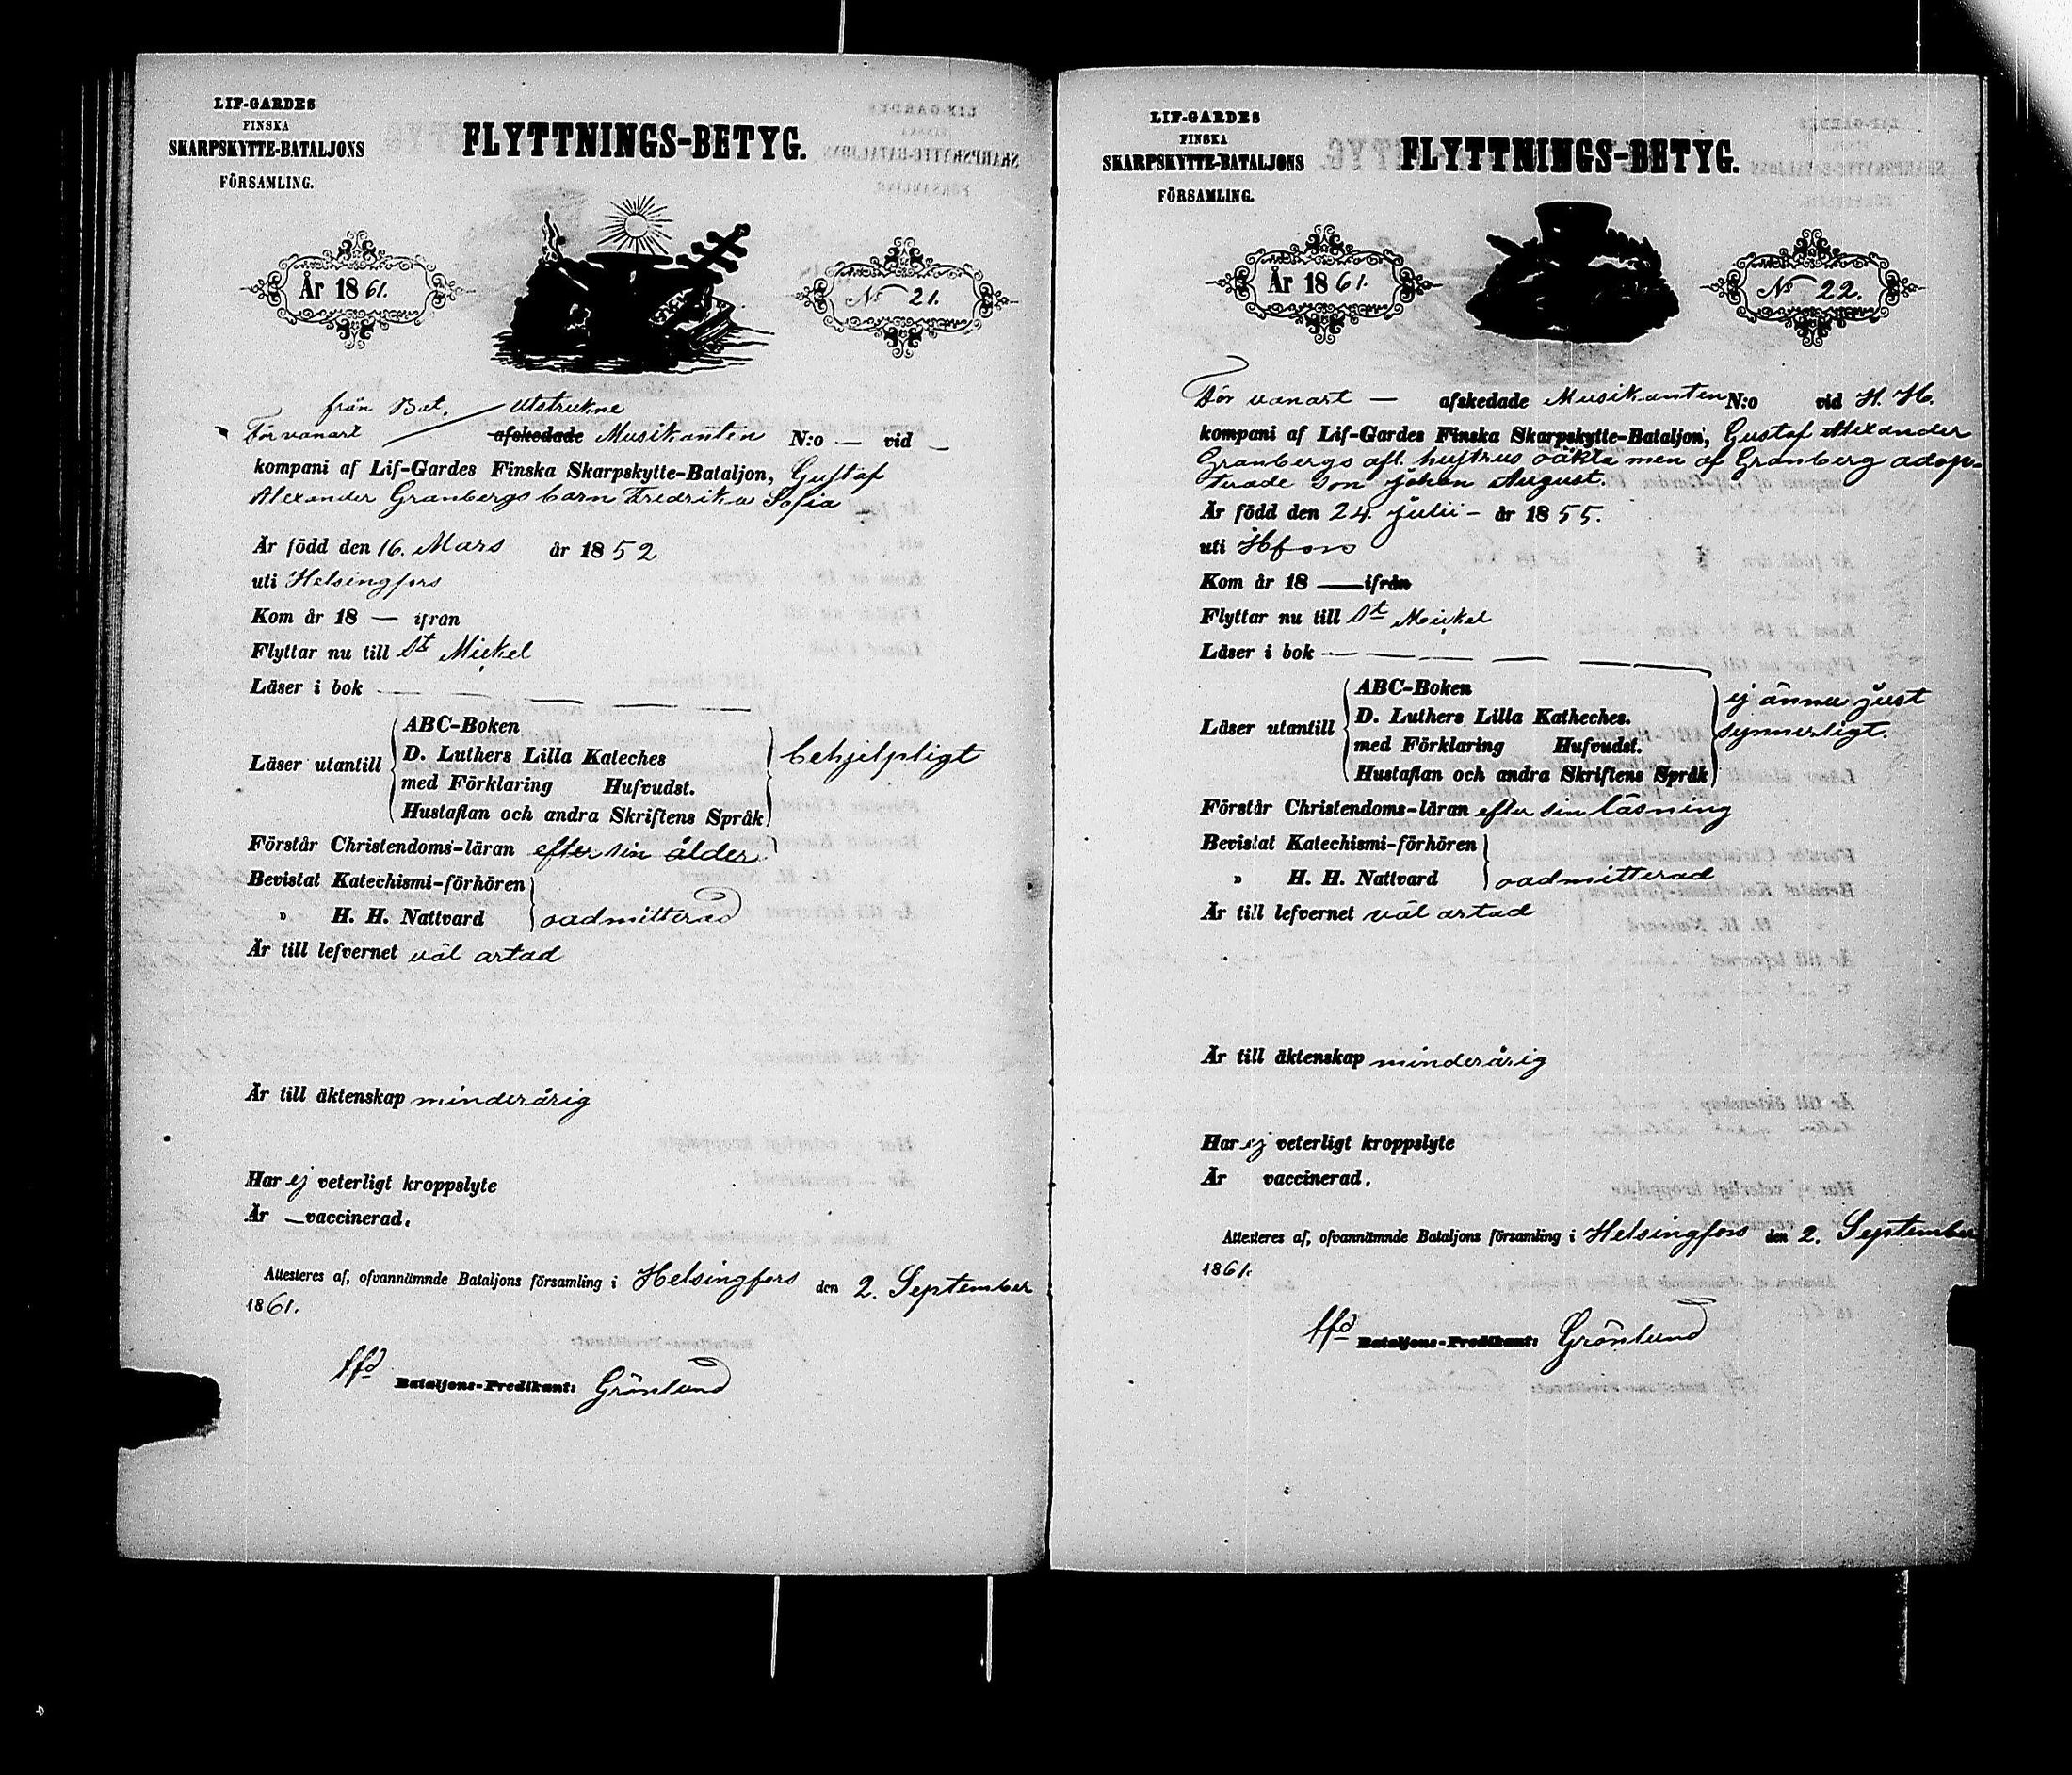 LIF-GARDES
FINSKA
SKARPSKYTTE-BATALJONS
FÖRSAMLING.
FLYTTNINGS-BETYG.
År 1861.
No 21.
från Bat. utstrukne
För vanart afskedade Musikanten N:o — vid —
kompani af Lif-Gardes Finska Skarpskytte-Bataljon, Gustaf
Alexander Granbergs barn Fredrika Sofia —
Är född den 16. Mars år 1852.
uti Helsingfors
Kom år 18 — ifrån
Flyttar nu till St Mickel
Läser i bok — — — — —
Läser utantill
ABC-Boken
D. Luthers Lilla Kateches
med Förklaring Hufvudst.
Hustaflan och andra Skriftens Språk
behjelpligt
Förstår Christendoms-läran efter sin ålder
Bevistat Katechismi-förhören
" H. H. Nattvard
oadmitterad
Är till lefvernet väl artad
Är till äktenskap minderårig
Har ej veterligt kroppslyte
Är — vaccinerad.
Attesteres af, ofvannämnde Bataljons församling i Helsingfors den 2. September
1861.
ffd Bataljons-Predikant: Grönlund
LIF-GARDES
FINSKA
SKARPSKYTTE-BATALJONS
FÖRSAMLING.
FLYTTNINGS-BETYG.
År 1861.
No 22.
För vanart — afskedade Musikanten N:o vid H. H.
kompani af Lif-Gardes Finska Skarpskytte-Bataljon, Gustaf Alexander
Granbergs afl. hustrus oäkta men af Granberg adop-
terade son Johan August.
Är född den 24. Julii — år 1855.
uti Hfors
Kom år 18 — ifrån
Flyttar nu till St Mickel
Läser i bok — — — — —
Läser utantill
ABC-Boken
D. Luthers Lilla Katheches.
med Förklaring Hufvudst.
Hustaflan och andra Skriftens Språk
ej ännu just
synnerligt.
Förstår Christendoms-läran efter sin läsning
Bevistat Katechismi-förhören
" H. H. Nattvard
oadmitterad
Är till lefvernet väl artad
Är till äktenskap minderårig
Har ej veterligt kroppslyte
Är vaccinerad.
Attesteres af, ofvannämnde Bataljons församling i Helsingfors den 2. September
1861.
ffd Bataljons-Predikant: Grönlund